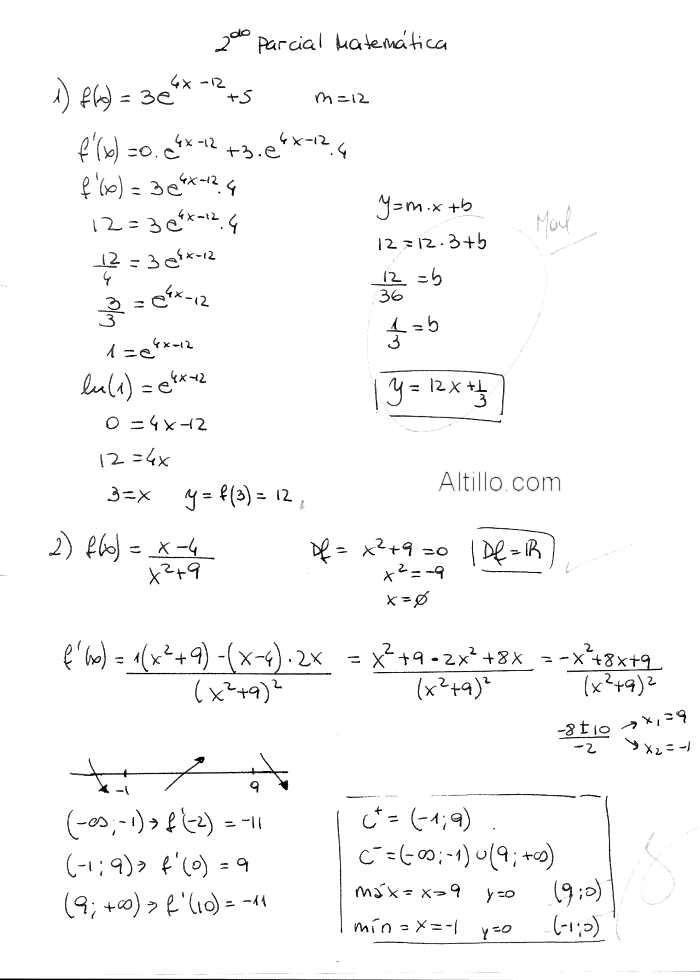 2do Parcial Matemática
1) f(x) = 3e^{4x-12} + 5    m = 12
f'(x) = 0. e^{4x-12} + 3. e^{4x-12}. 4
f'(x) = 3e^{4x-12}. 4
12 = 3e^{4x-12}. 4
12/4 = 3e^{4x-12}
3/3 = e^{4x-12}
1 = e^{4x-12}
ln(1) = e^{4x-12}
0 = 4x-12
12 = 4x
3 = x    y = f(3) = 12
y = m.x + b
Mal
12 = 12.3 + b
12/36 = b
1/3 = b
y = 12x + 1/3
Altillo.com
2) f(x) = x-4/x²+9    Df = x²+9 = 0    Df = ℝ
x² = -9
x = ∅
f'(x) = 1(x²+9) - (x-4).2x/(x²+9)² = x²+9-2x²+8x/(x²+9)² = -x²+8x+9/(x²+9)²
-8±10/-2 → x₁ = 9
↘ x₂ = -1
-1    9
(-∞; -1) → f'(-2) = -11
(-1; 9) → f'(0) = 9
(9; +∞) → f'(10) = -11
C⁺ = (-1; 9)
C⁻ = (-∞; -1) ∪ (9; +∞)
máx = x = 9    y = 0    (9; 0)
mín = x = -1    y = 0    (-1; 0)